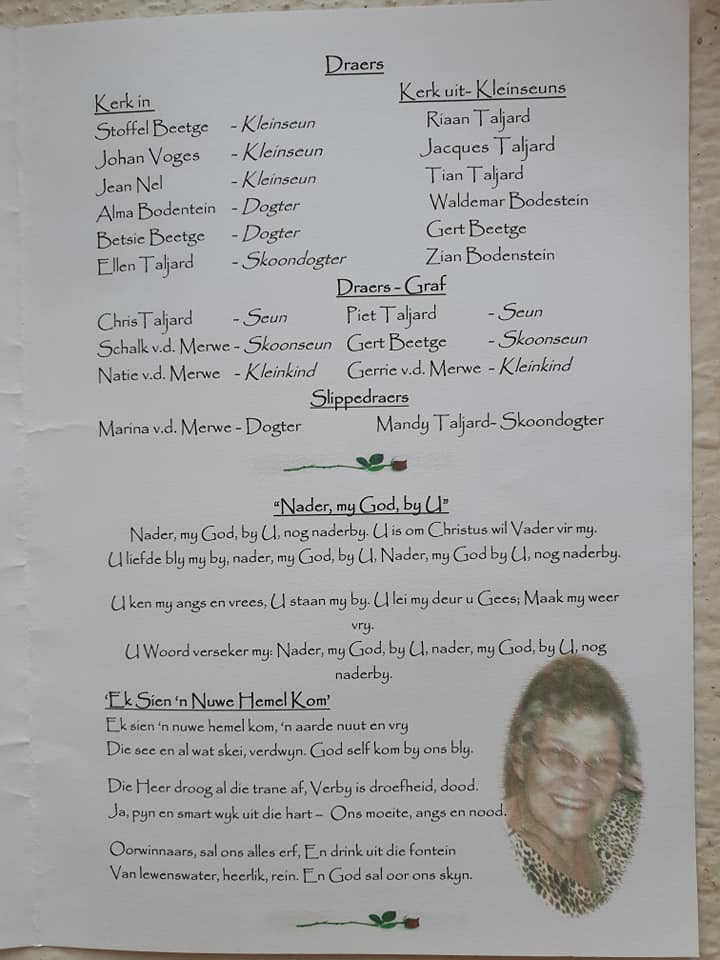 Draers
Kerk in
Kerk uit- Kleinseuns
Stoffel Beetge - Kleinseun Riaan Taljard
Johan Voges - Kleinseun Jacques Taljard
Jean Nel - Kleinseun Tian Taljard
Alma Bodentein - Dogter Waldemar Bodestein
Betsie Beetge - Dogter Gert Beetge
Ellen Taljard - Skoondogter Zian Bodenstein
Draers - Graf
ChrisTaljard - Seun Piet Taljard - Seun
Schalk v.d. Merwe - Skoonseun Gert Beetge - Skoonseun
Natie v.d. Merwe - Kleinkind Gerrie v.d. Merwe - Kleinkind
Slippedraers
Marina v.d. Merwe - Dogter Mandy Taljard- Skoondogter
"Nader, my God, by U"
Nader, my God, by U, nog naderby. U is om Christus wil Vader vir my.
U liefde bly my by, nader, my God, by U, Nader, my God by U, nog naderby.
U ken my angs en vrees, U staan my by. U lei my deur u Gees; Maak my weer
vry.
U Woord verseker my: Nader, my God, by U, nader, my God, by U, nog
naderby.
'Ek Sien 'n Nuwe Hemel Kom'
Ek sien 'n nuwe hemel kom, 'n aarde nuut en vry
Die see en al wat skei, verdwyn. God self kom by ons bly.
Die Heer droog al die trane af, Verby is droefheid, dood.
Ja, pyn en smart wyk uit die hart – Ons moeite, angs en nood.
Oorwinnaars, sal ons alles erf, En drink uit die fontein
Van lewenswater, heerlik, rein. En God sal oor ons skyn.